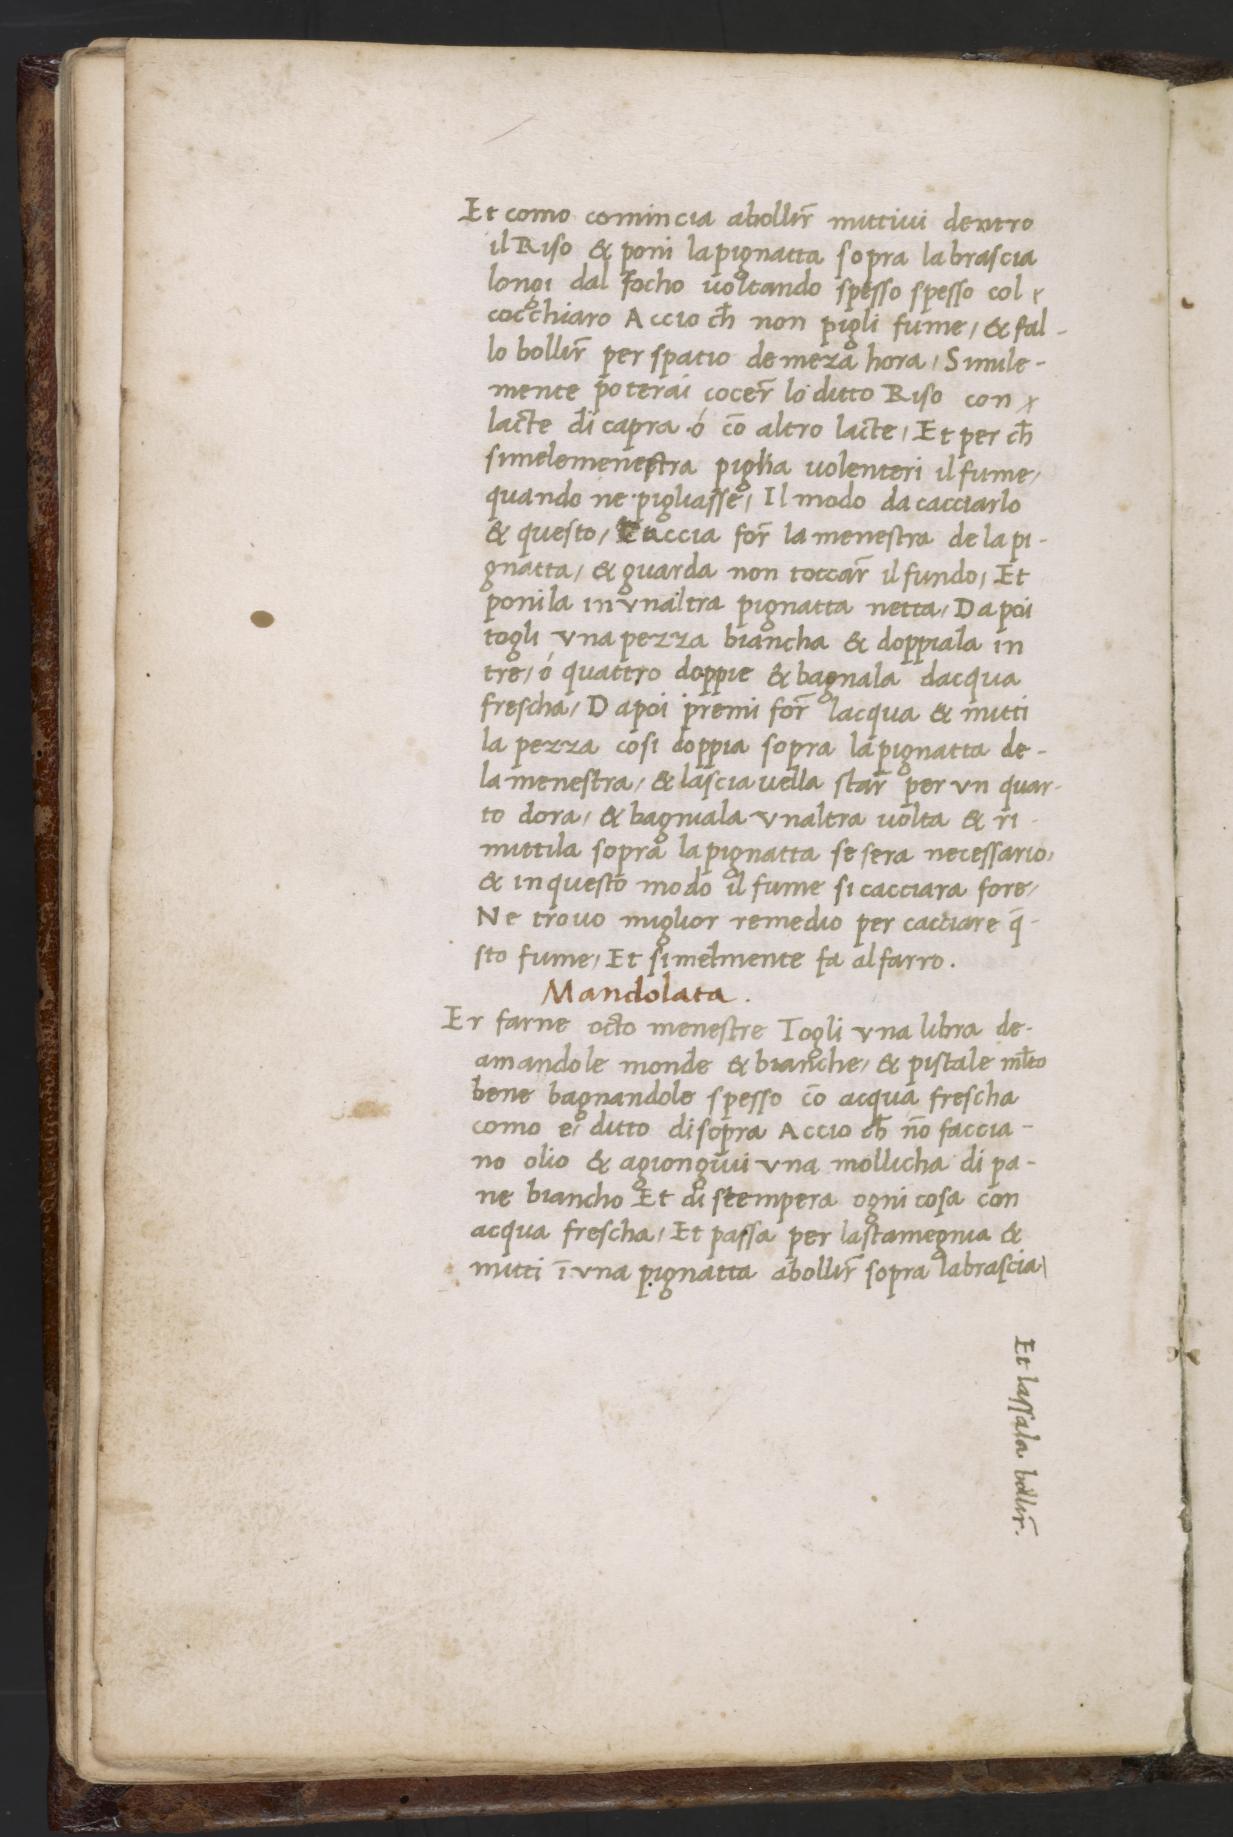 Et como comincia abollir̄ mittiui dentro
il Riso & poni la pignatta sopra la brascia
longi dal focho uoltando spesso spesso col
cocchiaro Accio ch̄ non pigli fume, & fal-
lo bollir̄ per spatio de meza hora, Simile-
mente poterai cocer̄ lo ditto Riso con
lacte di capra ó cō altro lacte, Et per ch̄
simelemenestra piglia uolenteri il fume,
quando ne pigliasse, Il modo da cacciarlo
& questo, Caccia for̄ la menestra de la pi-
gnatta, & guarda non toccar̄ il fundo, Et
ponila in vnaltra pignatta netta, Dapoi
togli vna pezza biancha & doppiala in
tre, ó quattro doppie & bagnala dacqua
frescha, Dapoi premi for̄ lacqua & mitti
la pezza cosi doppia sopra la pignatta de-
la menestra, & lascia uella star̄ per vn quar-
to dora, & bagniala vnaltra uolta & ri-
mittila sopra la pignatta se sera necessario,
& in questo modo il fume si cacciara fore,
Ne trouo miglior remedio per cacciare q̄-
sto fume, Et simelmente fa al farro.
Mandolata.
Er farne octo menestre Togli vna libra de-
amandole monde & bianche, & pistale ml̄to
bene bagnandole spesso cō acqua frescha
como e, ditto di sopra Accio ch̄ nō faccia-
no olio & agiongiui vna mollicha di pa-
ne biancho Et distempera ogni cosa con
acqua frescha, Et passa per la stamegnia &
mitti ī vna pignatta abollir̄ sopra la brascia
Et lassala bollir̄.